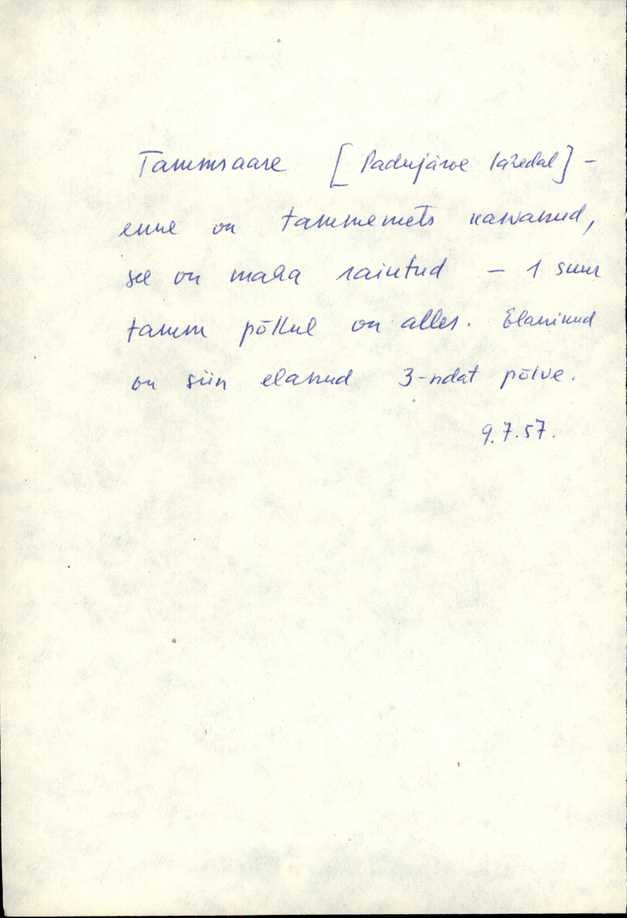 Tammsaare [Padujärve läredal] -
enne on tammemets kasvanud,
see on maha raiutud - 1 suur
tamm põllul on alles. Elanikud
on siin elanud 3-ndat põlve.
9.7.57.